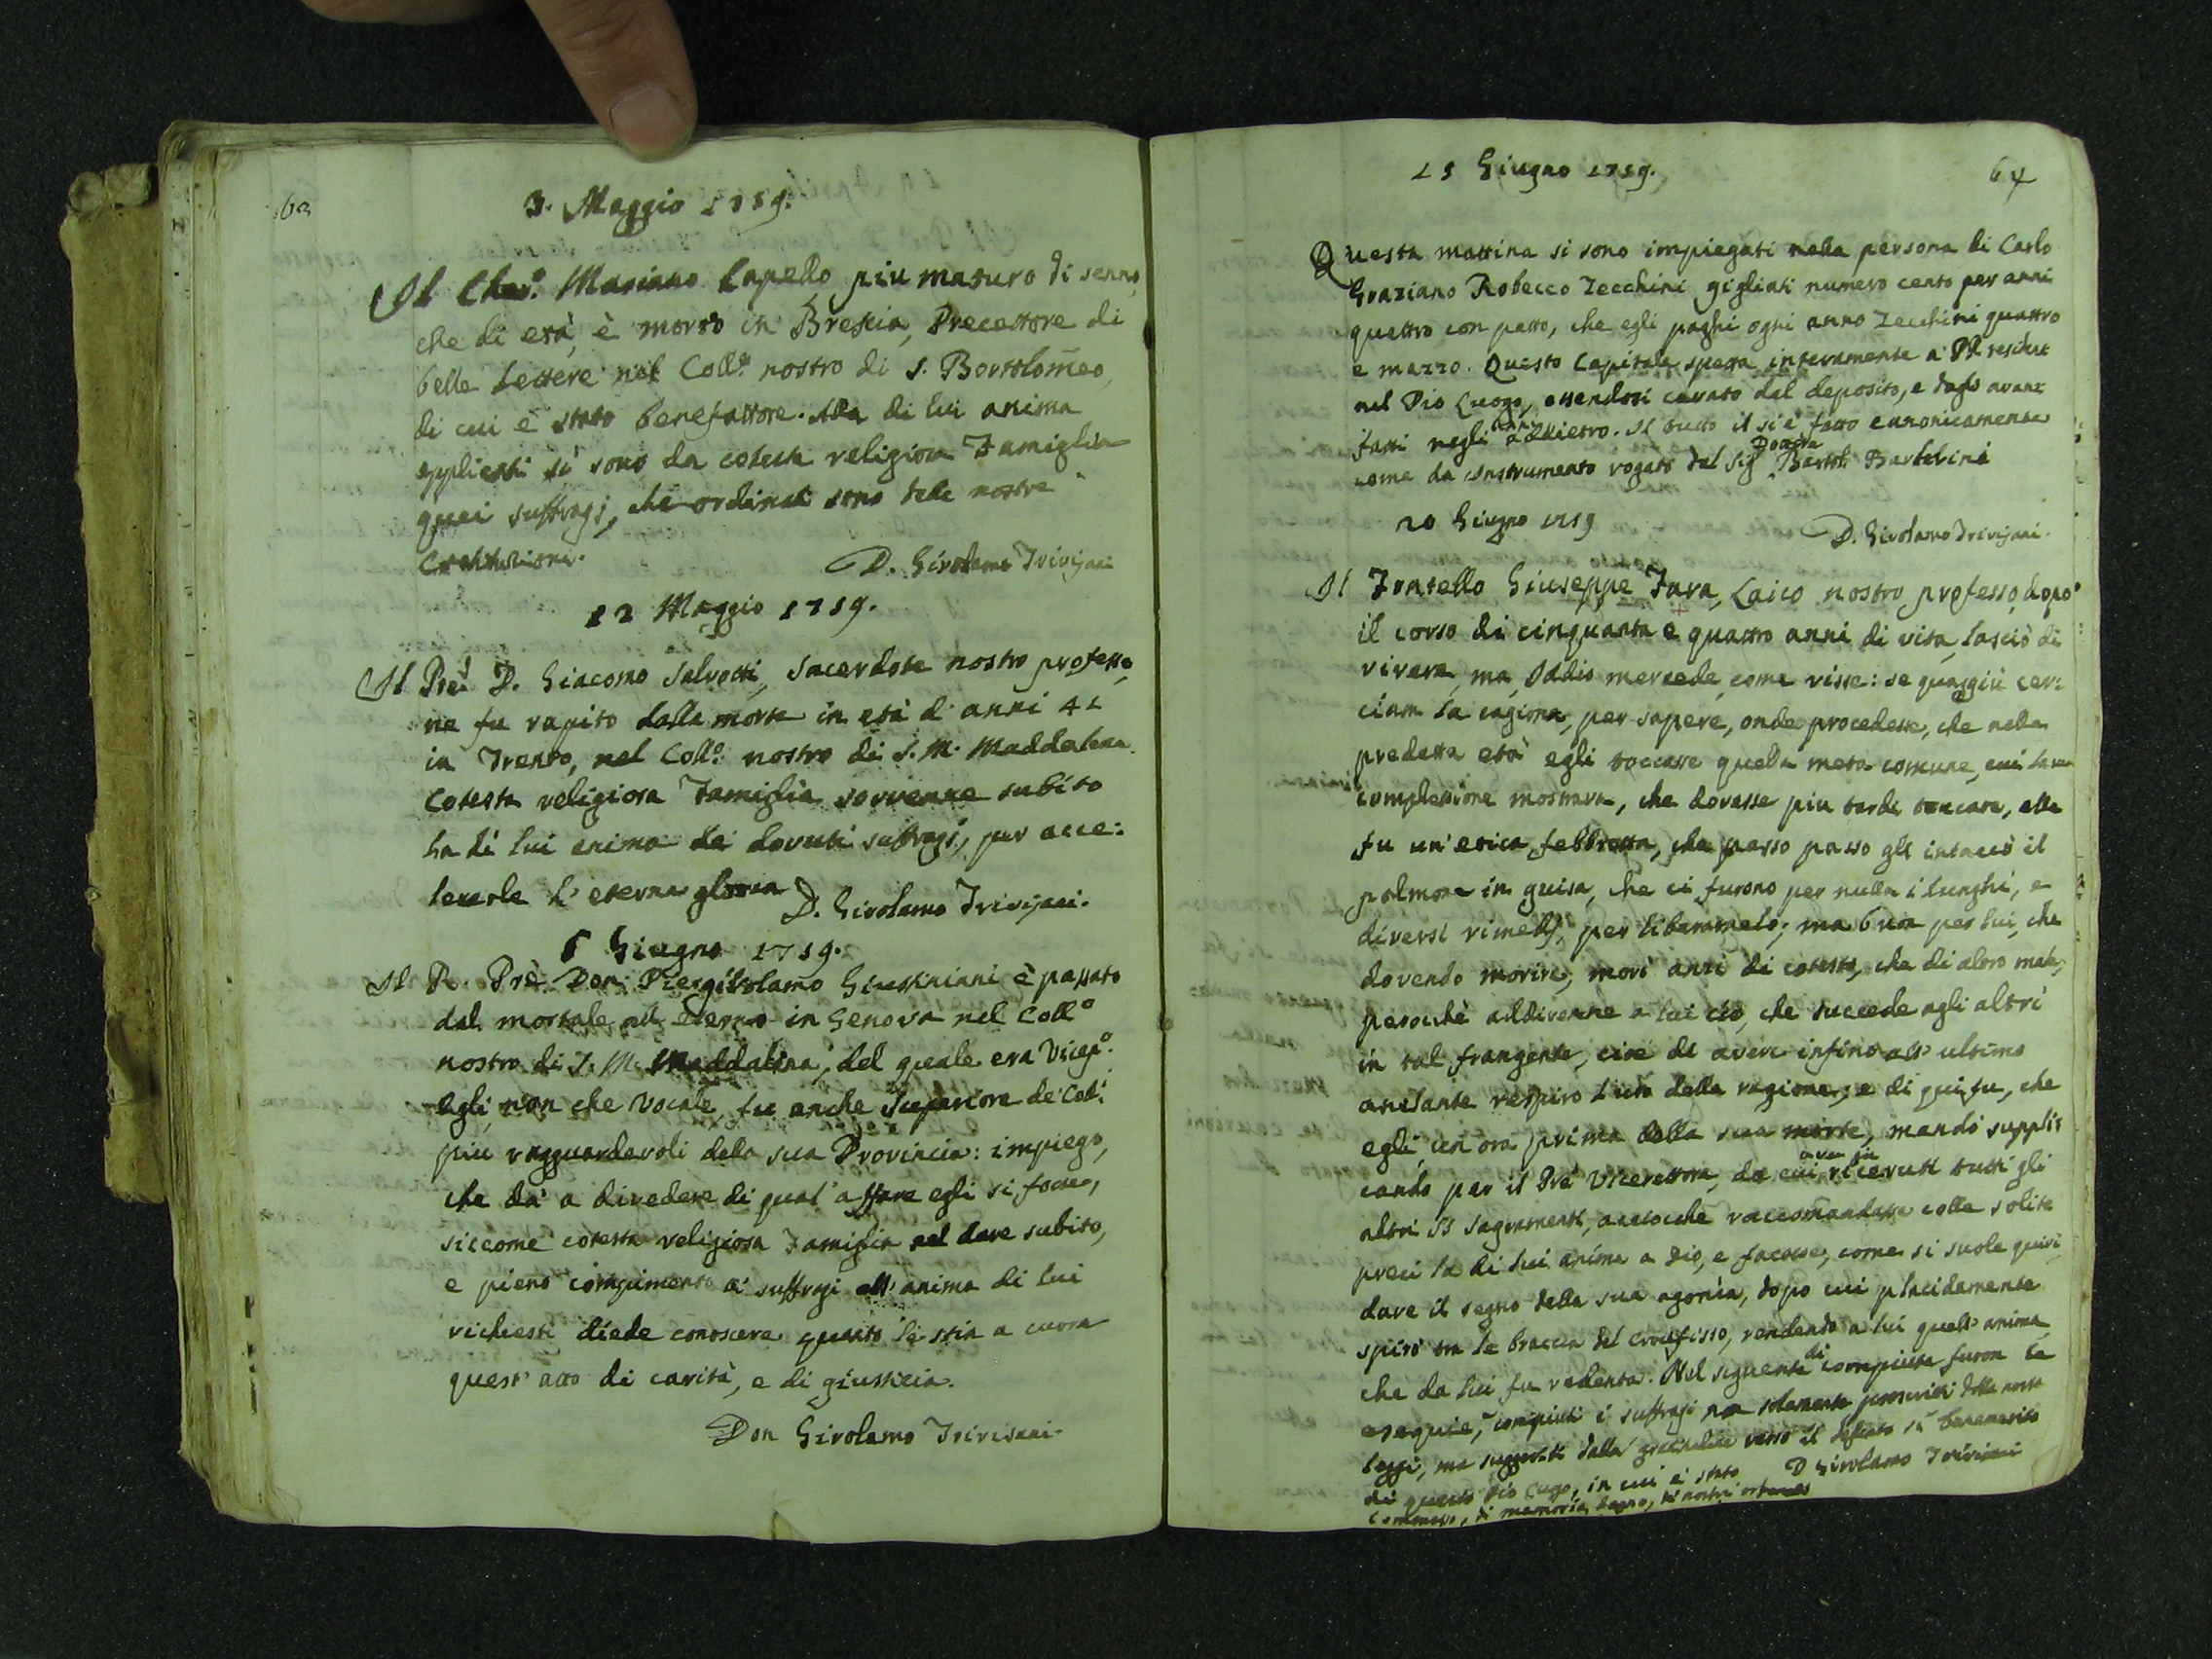 63
3. Maggio 1759.
Il Cher.º Mariano Capello piu maturo di senno,
che di età, è morto in Brescia, Precettore di
belle Lettere nel Coll.º nostro di S. Bortolomeo,
di cui è stato benefattore. Alla di lui anima
applicati si sono da cotesta religiosa Famiglia
quei suffragj, che ordinati sono dalle nostre
Costituzioni.
D. Girolamo Trivisani
12 Maggio 1759.
Il Prè D. Giacomo Salvotti, Sacerdote nostro professo,
ne fu rapito dalla morte in età d'anni 41
in Trento, nel Coll.º nostro di S. M. Maddalena.
Cotesta religiosa Famiglia sovvenne subito
la di lui anima de' dovuti suffragj, per acce:
lerarle l'eterna gloria
D. Girolamo Trivisani.
5 Giugno 1759.
Il R. Prè Don Piergirolamo Giustiniani è passato
dal mortale all'eterno in Genova nel Collº
nostro di S. M. Maddalena, del quale era Vicepº.
Egli, non che Vocale, fu anche Superiore de' Coll.i
più ragguardevoli della sua Provincia: impiego,
che dà a divedere di qual'affare egli si fosse,
siccome cotesta religiosa Famiglia nel dare subito,
e pieno compimento a' suffragj all'anima di lui
richiesti diede conoscere quanto le stia a cuore
quest'atto di carità, e di giustizia.
Don Girolamo Trivisani.
15 Giugno 1759.
64
Questa mattina si sono impiegati nella persona di Carlo
Graziano Robecco Zecchini gigliati numero cento per anni
quattro con patto, che egli paghi ogni anno Zecchini quattro
e mezzo. Questo Capitale spetta interamente a' PP.
nel Pio Luogo, essendosi cavato dal deposito, e dagli avanz
fatti negli anni addietro. Il tutto il si è fatto canonicamente
come da Instrumento rogato dal Sig.r Dottor Bartol. Bartolini
D. Girolamo Trivisani.
20 Giugno 1759
Il Fratello Giuseppe Fava, Laico nostro professo, dopo
il corso di cinquanta e quattro anni di vita, lasciò di
vivere, ma, Iddio mercede, come visse: se quaggiù cer:
ciam la cagione, per sapere, onde procedesse, che nella
predetta età egli toccasse quella meta comune, cui la sua
complessione mostrava, che dovesse piu tardi toccare, ella
fu un'etica febbretta, che passo passo gli intaccò il
polmone in guisa, che ci furono per nulla i lunghi, e
diversi rimedj, per liberarnelo; ma buon per lui, che
dovendo morire, morì anzi di cotesto, che di altro male,
perocchè addivenne a lui ciò, che succede agli altri
in tal frangente, cioè di avere infino all'ultimo
anelante respiro l'uso della ragione; e di qui fu, che
egli, un'ora prima della sua morte, mandò suppli:
cando per il Prè Vicerettore, da cui aven già ricevuti tutti gli
altri SS Sagramenti, acciocchè raccomandasse colle solite
preci la di lui anima a Dio, e facesse, come si suole quivi,
dare il segno della sua agonìa, dopo cui placidamente
spirò tra le braccia del Crocifisso, rendendo a lui quell'anima,
che da lui fu redenta. Nel seguente dì compiute furon le
esequie, compiuti i suffragj non solamente prescritti dalle nostre
leggi, ma suggeriti dalla gratitudine verso il defunto sì benemerito
di questo Pio Luogo, in cui è stato
Commesso, di memoria degno, de' nostri orfanelli
D Girolamo Trivisani